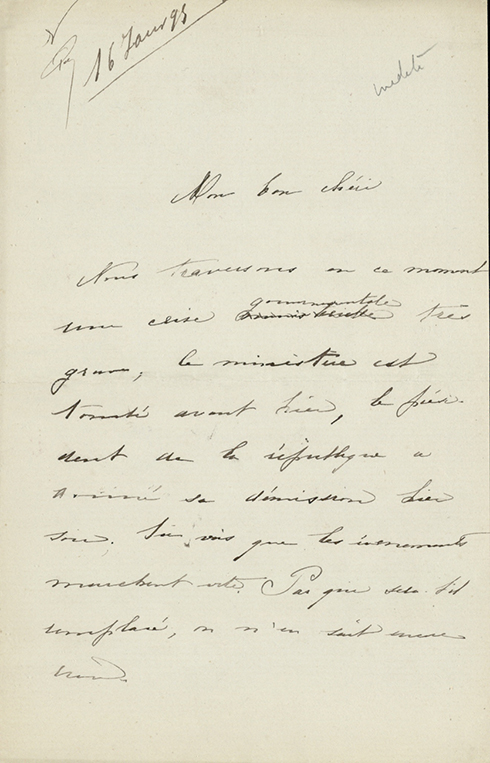 16 Janv 95
inédite
Mon bon chéri
Nous traversons en ce moment
une crise gouvernementale très
grave, le ministère est
tombé avant hier, le prési-
dent de la république a
donné sa démission hier
soir. Tu vois que les évenements
marchent vite. Par qui sera t'il
remplacé, on n'en sait encore
rien.